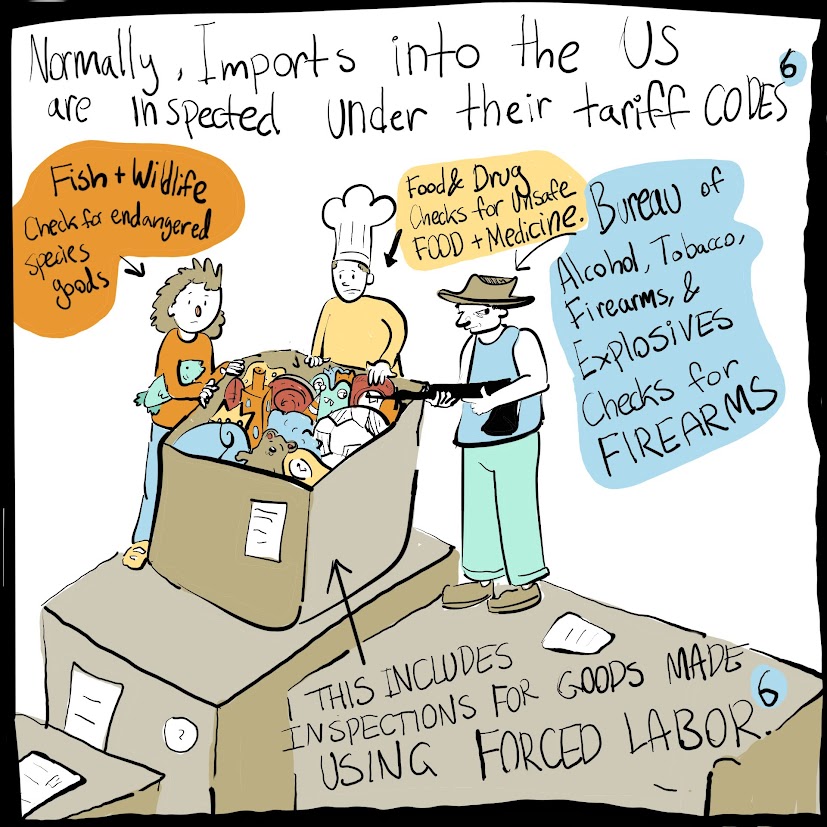 Normally, Imports into the US
are Inspected Under their tariff CODES 6
Fish + Wildlife
Check for endangered
species
goods
Food & Drug
Checks for Unsafe
FOOD + Medicine.
Bureau of
Alcohol, Tobacco,
Firearms, &
EXPLOSIVES
Checks for
FIREARMS
THIS INCLUDES
INSPECTIONS FOR GOODS MADE
USING FORCED LABOR. 6
?